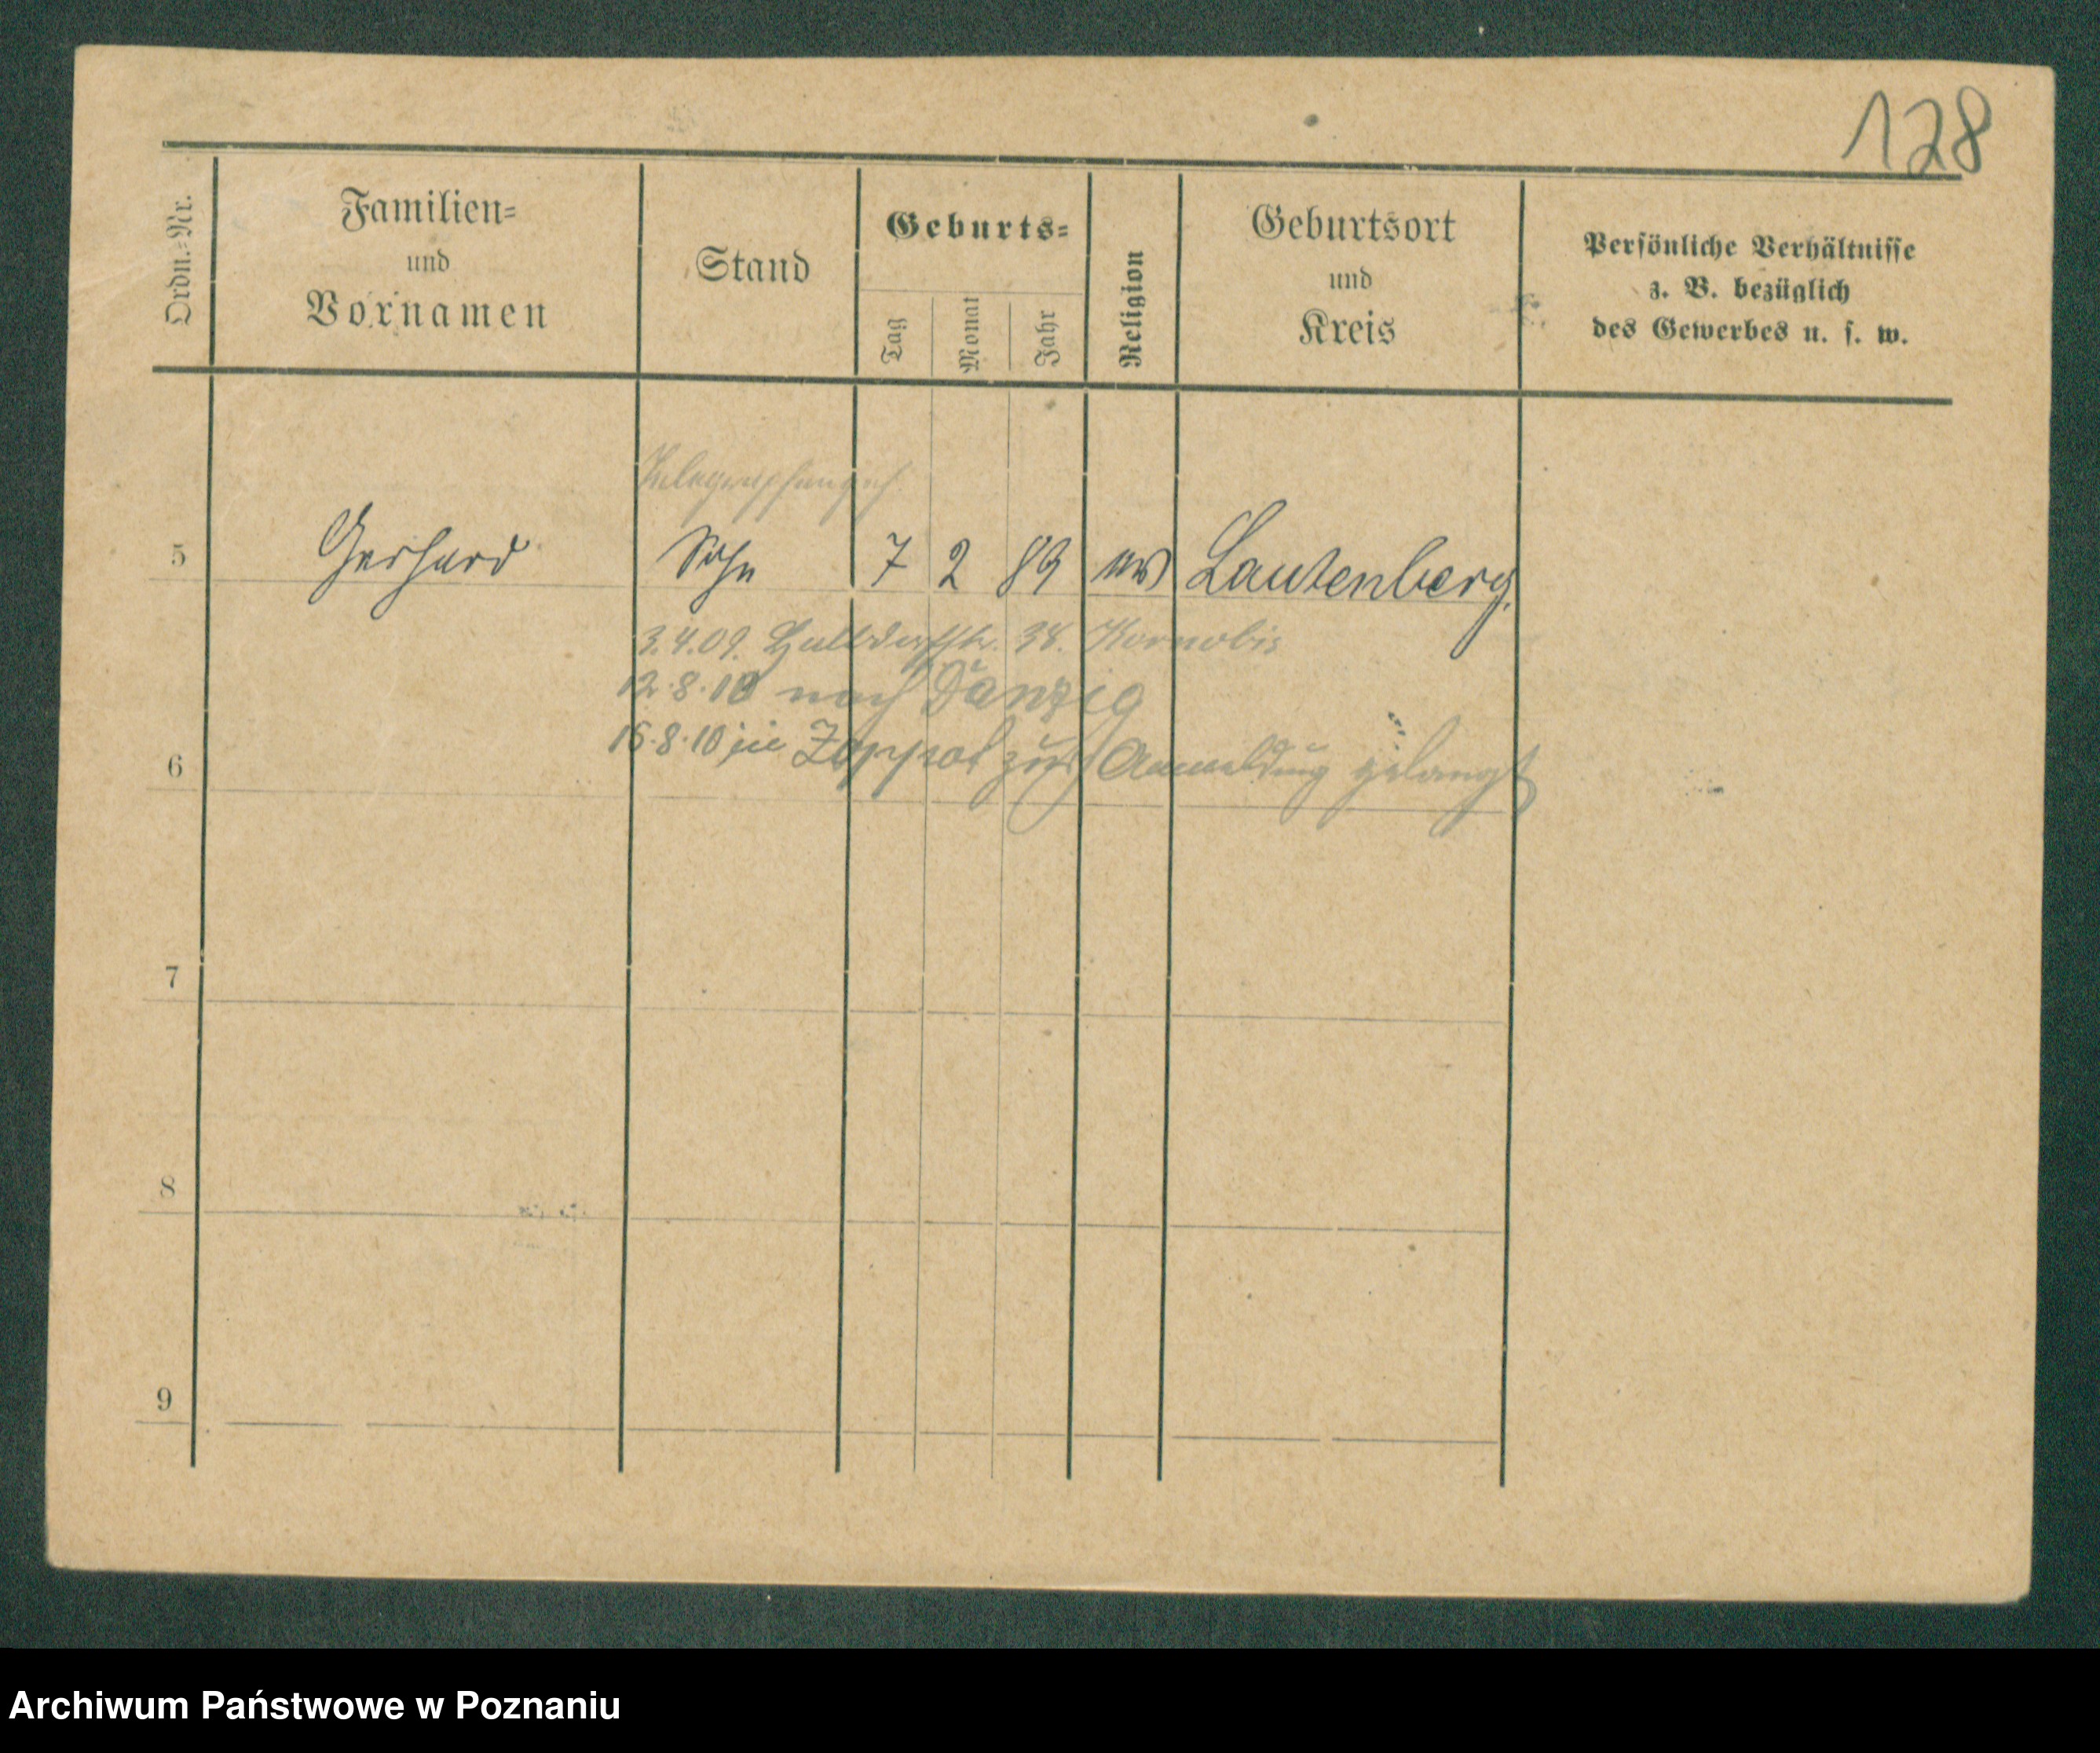 128
Ordn.-Nr. Familien- und Vornamen Stand Geburts- Tag Monat Jahr Religion Geburtsort und Kreis Persönliche Verhältnisse z. B. bezüglich des Gewerbes u. s. w.
Telegraphengeh.
5 Gerhard Sohn 7 2 89 ev Lautenberg.
3.4.09. Halbdorfstr. 38. Kornobis
12.8.10 nach Danzig
16.8.10 in Zoppot zur Anmeldung gelangt
6
7
8
9
Archiwum Państwowe w Poznaniu